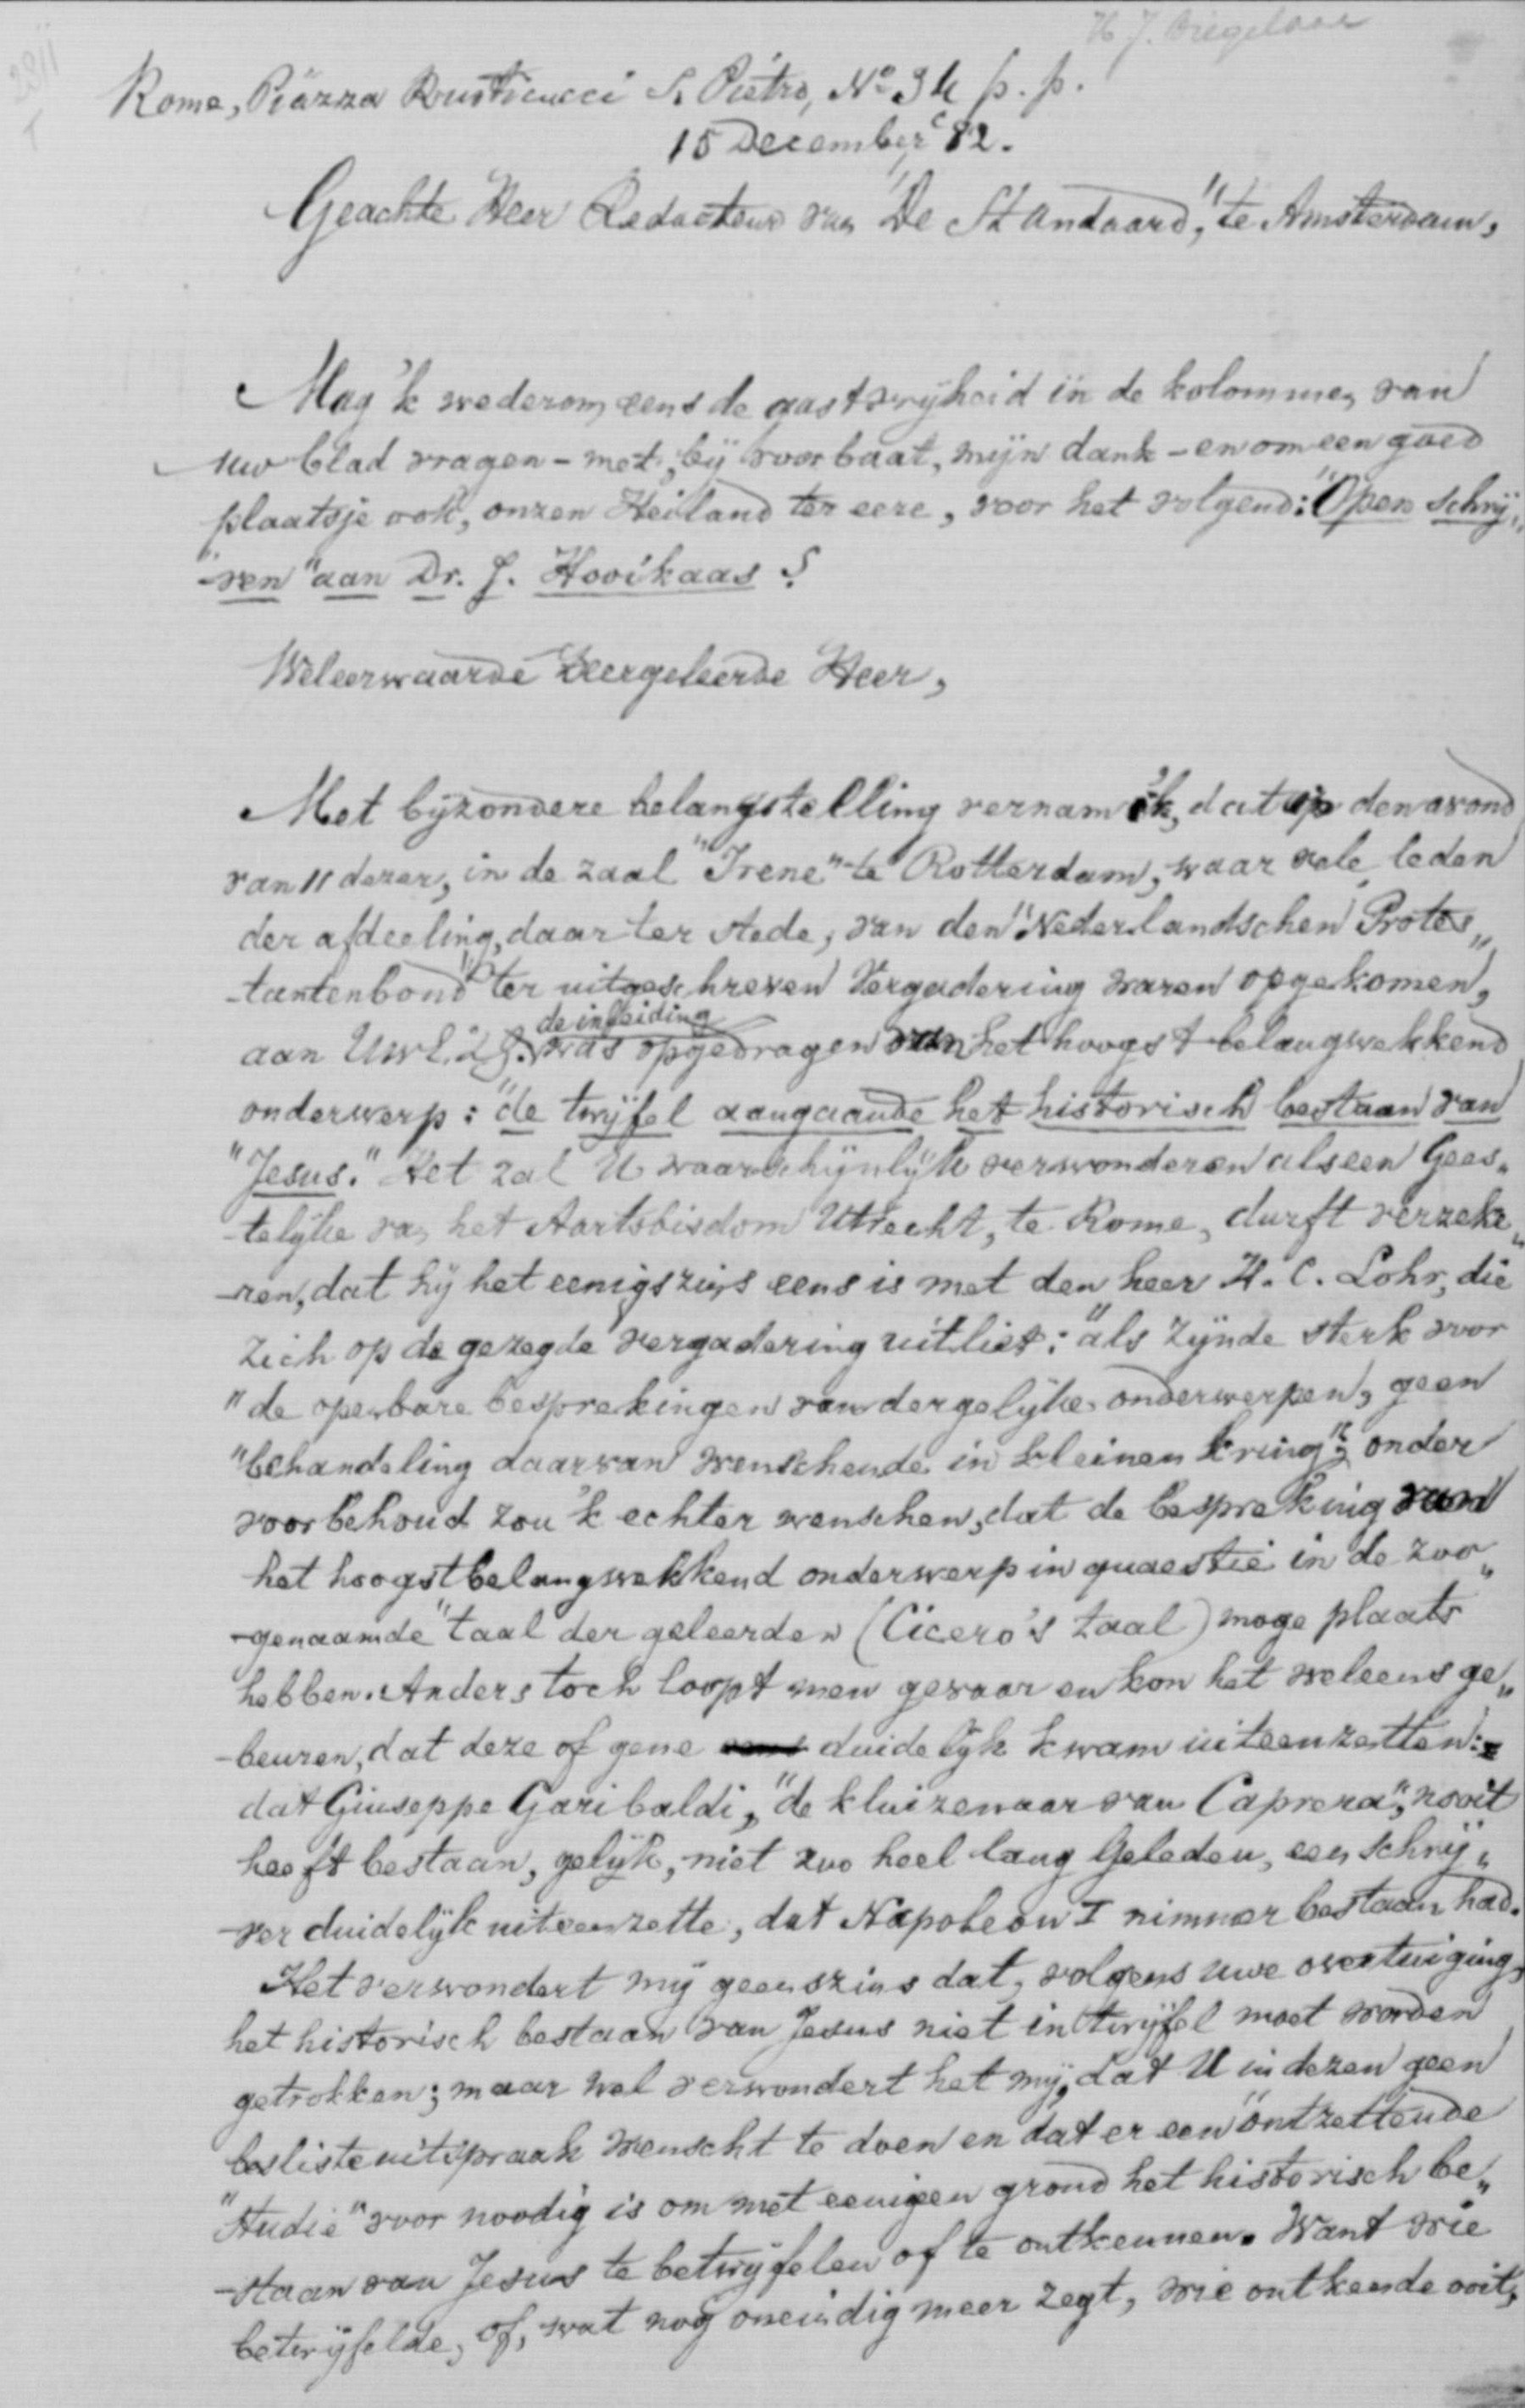 Rome, Piazza Rusticucci S. Pietro, No 34 p. p.
15 December '82.
Geachte Heer Redacteur van "De Standaard," te Amsterdam,
Mag 'k wederom eens de gastvrijheid in de kolommen van
uw blad vragen - met, bij voorbaat, mijn dank - en om een goed
plaatsje ook, onzen Heiland ter eere, voor het volgend: "Open schrij„
"-ven" aan Dr. J. Hooikaas?
Weleerwaarde Zeergeleerde Heer,
Met bijzondere belangstelling vernam 'k, dat op den avond
van 11 dezer, in de zaal "Irene" te Rotterdam, waar vele leden
der afdeeling, daar ter stede, van den "Nederlandschen Protes„
-tantenbond" ter uitgeschreven Vergadering waren opgekomen,
de inleiding
aan UwE. was opgedragen van het hoogst belangwekkend
onderwerp: "de twijfel aangaande het historisch bestaan van
"Jesus." Het zal U waarschijnlijk verwonderen als een Gees„
-telijke van het Aartsbisdom Utrecht, te Rome, durft verzeke„
-ren, dat hij het eenigszins eens is met den heer H. C. Lohr, die
zich op de gezegde vergadering uitliet: "als zijnde sterk voor
"de openbare besprekingen van dergelijke onderwerpen, geen
"behandeling daarvan wenschende in kleinen kring"; onder
voorbehoud zou 'k echter wenschen, dat de bespreking van
het hoogst belangwekkend onderwerp in quaestie in de zoo„
-genaamde "taal der geleerden (Cicero's taal) moge plaats
hebben. Anders toch loopt men gevaar en kon het weleens ge„
-beuren, dat deze of gene duidelijk kwam uiteenzetten:
dat Giuseppe Garibaldi, "de kluizenaar van Caprera", nooit
heeft bestaan, gelijk, niet zoo heel lang geleden, een schrij„
-ver duidelijk uiteenzette, dat Napoleon I nimmer bestaan had.
Het verwondert mij geenszins dat, volgens uwe overtuiging,
het historisch bestaan van Jesus niet in twijfel moet worden
getrokken; maar wel verwondert het mij, dat U in dezen geen
besliste uitspraak wenscht te doen en dat er een "ontzettende
"studie" voor noodig is om met eenigen grond het historisch be„
-staan van Jesus te betwijfelen of te ontkennen. Want wie
betwijfelde, of, wat nog oneindig meer zegt, wie ontkende ooit,